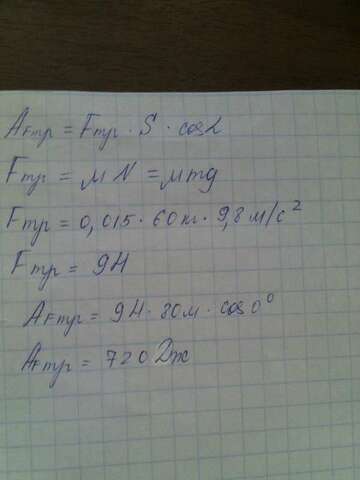 AFтр = Fтр · S · cosα
Fтр = μN = μmg
Fтр = 0,015 · 60кг · 9,8м/с²
Fтр = 9Н
AFтр = 9Н · 80м · cos0°
AFтр = 720Дж